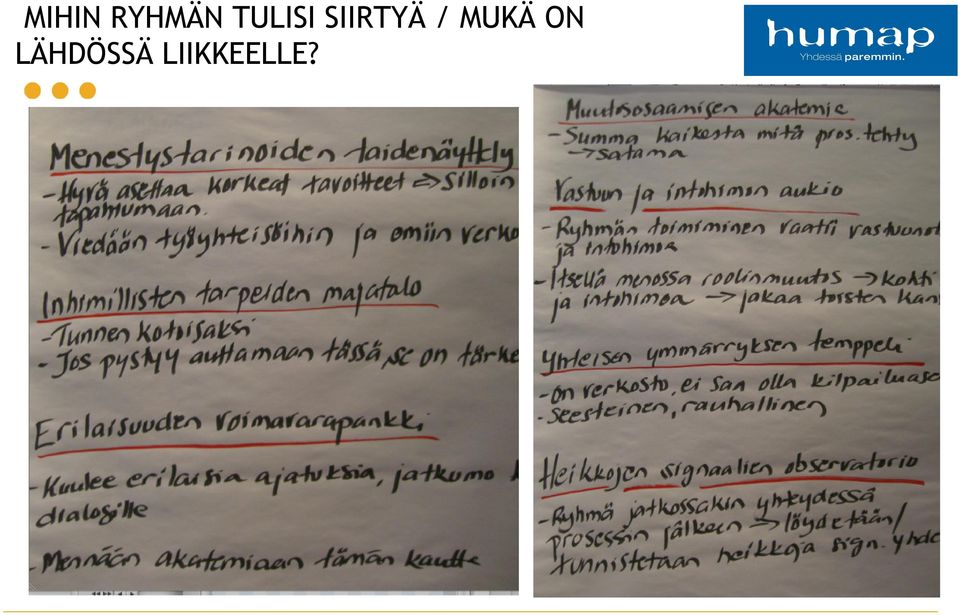 MIHIN RYHMÄN TULISI SIIRTYÄ / MUKÄ ON
LÄHDÖSSÄ LIIKKEELLE?
humap
Yhdessä paremmin.
Menestystarinoiden taidenäyttely
- Hyvä asettaa korkeat tavoitteet => silloin
tapahtumaan.
- Viedään työyhteisöihin ja omiin verko
Inhimillisten tarpeiden majatalo
- Tunnen kotoisaksi
- Jos pystyy auttamaan tässä, se on tärke
Erilaisuuden voimavarapankki
- Kuulee erilaisia ajatuksia, jatkumo
dialogille
- Mennään akatemiaan tämän kautta
Muutososaamisen akatemia
- Summa kaikesta mitä pros. tehty
-> satama
Vastuun ja intohimon aukio
- Ryhmän toimiminen vaatii vastuunot
ja intohimoa
- Itsellä menossa roolinmuutos -> kohti
ja intohimoa -> jakaa toisten kan
Yhteisen ymmärryksen temppeli
- On verkosto, ei saa olla kilpailuase
- Seesteinen, rauhallinen
Heikkojen signaalien observatorio
- Ryhmä jatkossakin yhteydessä
prosessin jälkeen -> löydetään/
tunnistetaan heikkoja sign. yhde